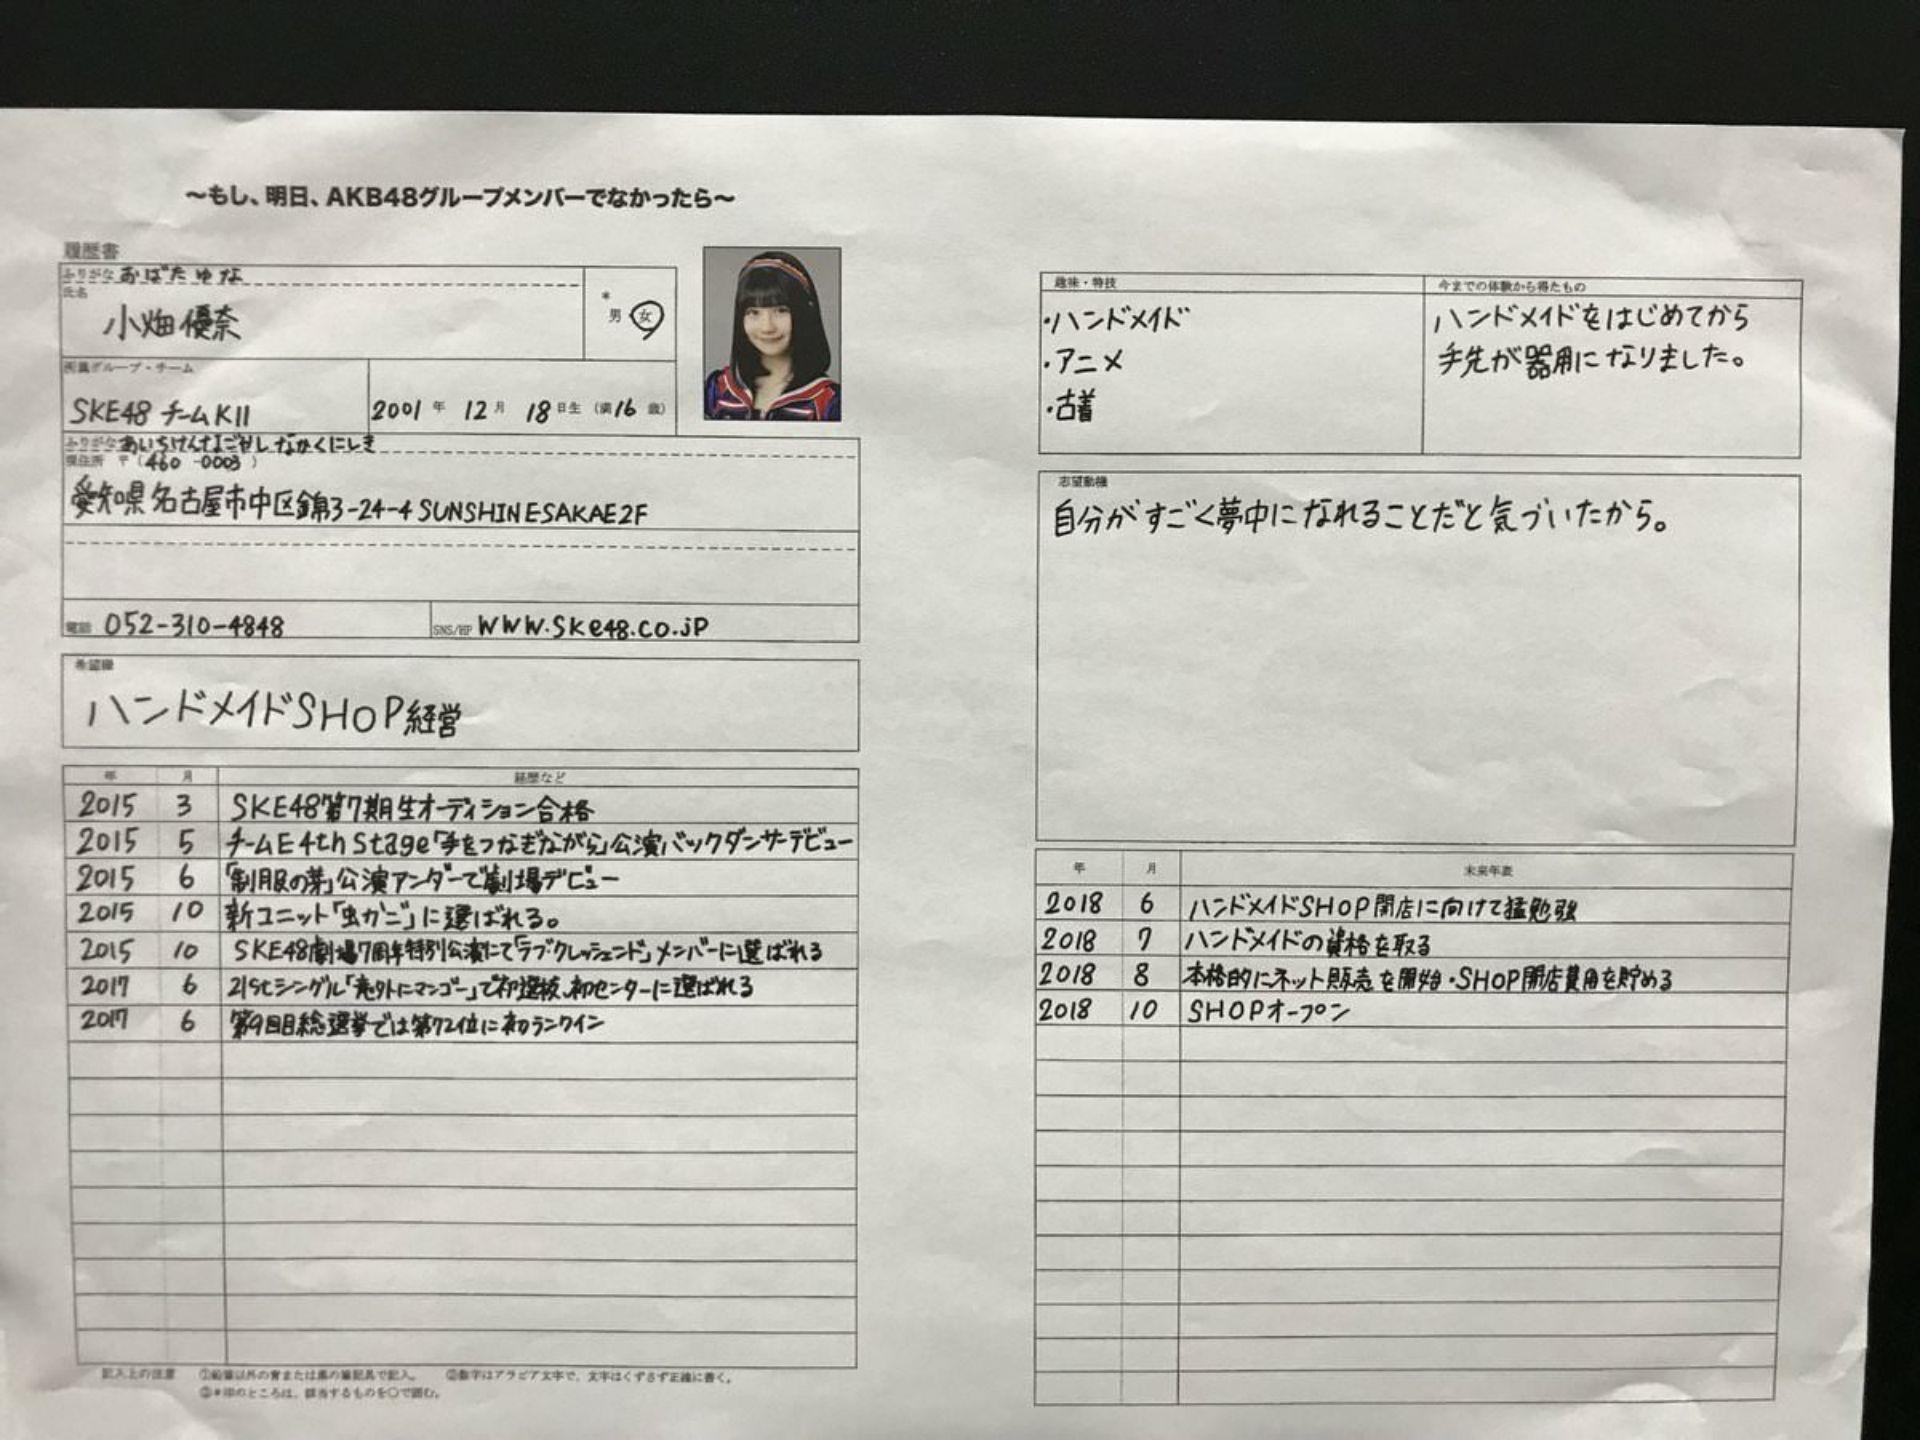 ～もし、明日、AKB48グループメンバーでなかったら～
履歴書
ふりがな おばた ゆな
氏名
小畑 優奈
* 男 女
所属グループ・チーム
SKE48 チームKII
2001 年 12 月 18 日生 (満 16 歳)
ふりがな あいちけんなごやし なかくにしき
現住所 〒(460-0003)
愛知県名古屋市中区錦3-24-4 SUNSHINESAKAE2F
電話 052-310-4848
SNS/HP www.ske48.co.jp
希望職
ハンドメイドSHOP経営
年 月 経歴など
2015 3 SKE48第7期生オーディション合格
2015 5 チームE 4th Stage「手をつなぎながら」公演バックダンサーデビュー
2015 6 「制服の芽」公演アンダーで劇場デビュー
2015 10 新ユニット「虫かご」に選ばれる。
2015 10 SKE48劇場7周年特別公演にて「ラブ・クレッシェンド」メンバーに選ばれる
2017 6 21stシングル「意外にマンゴー」で初選抜、初センターに選ばれる
2017 6 第9回目総選挙では第72位に初ランクイン
記入上の注意 ①鉛筆以外の青または黒の筆記具で記入。 ②数字はアラビア文字で、文字はくずさず正確に書く。
③＊印のところは、該当するものを○で囲む。
趣味・特技
・ハンドメイド
・アニメ
・古着
今までの体験から得たもの
ハンドメイドをはじめてから
手先が器用になりました。
志望動機
自分がすごく夢中になれることだと気づいたから。
年 月 未来年表
2018 6 ハンドメイドSHOP開店に向けて猛勉強
2018 7 ハンドメイドの資格を取る
2018 8 本格的にネット販売を開始・SHOP開店費用を貯める
2018 10 SHOPオープン